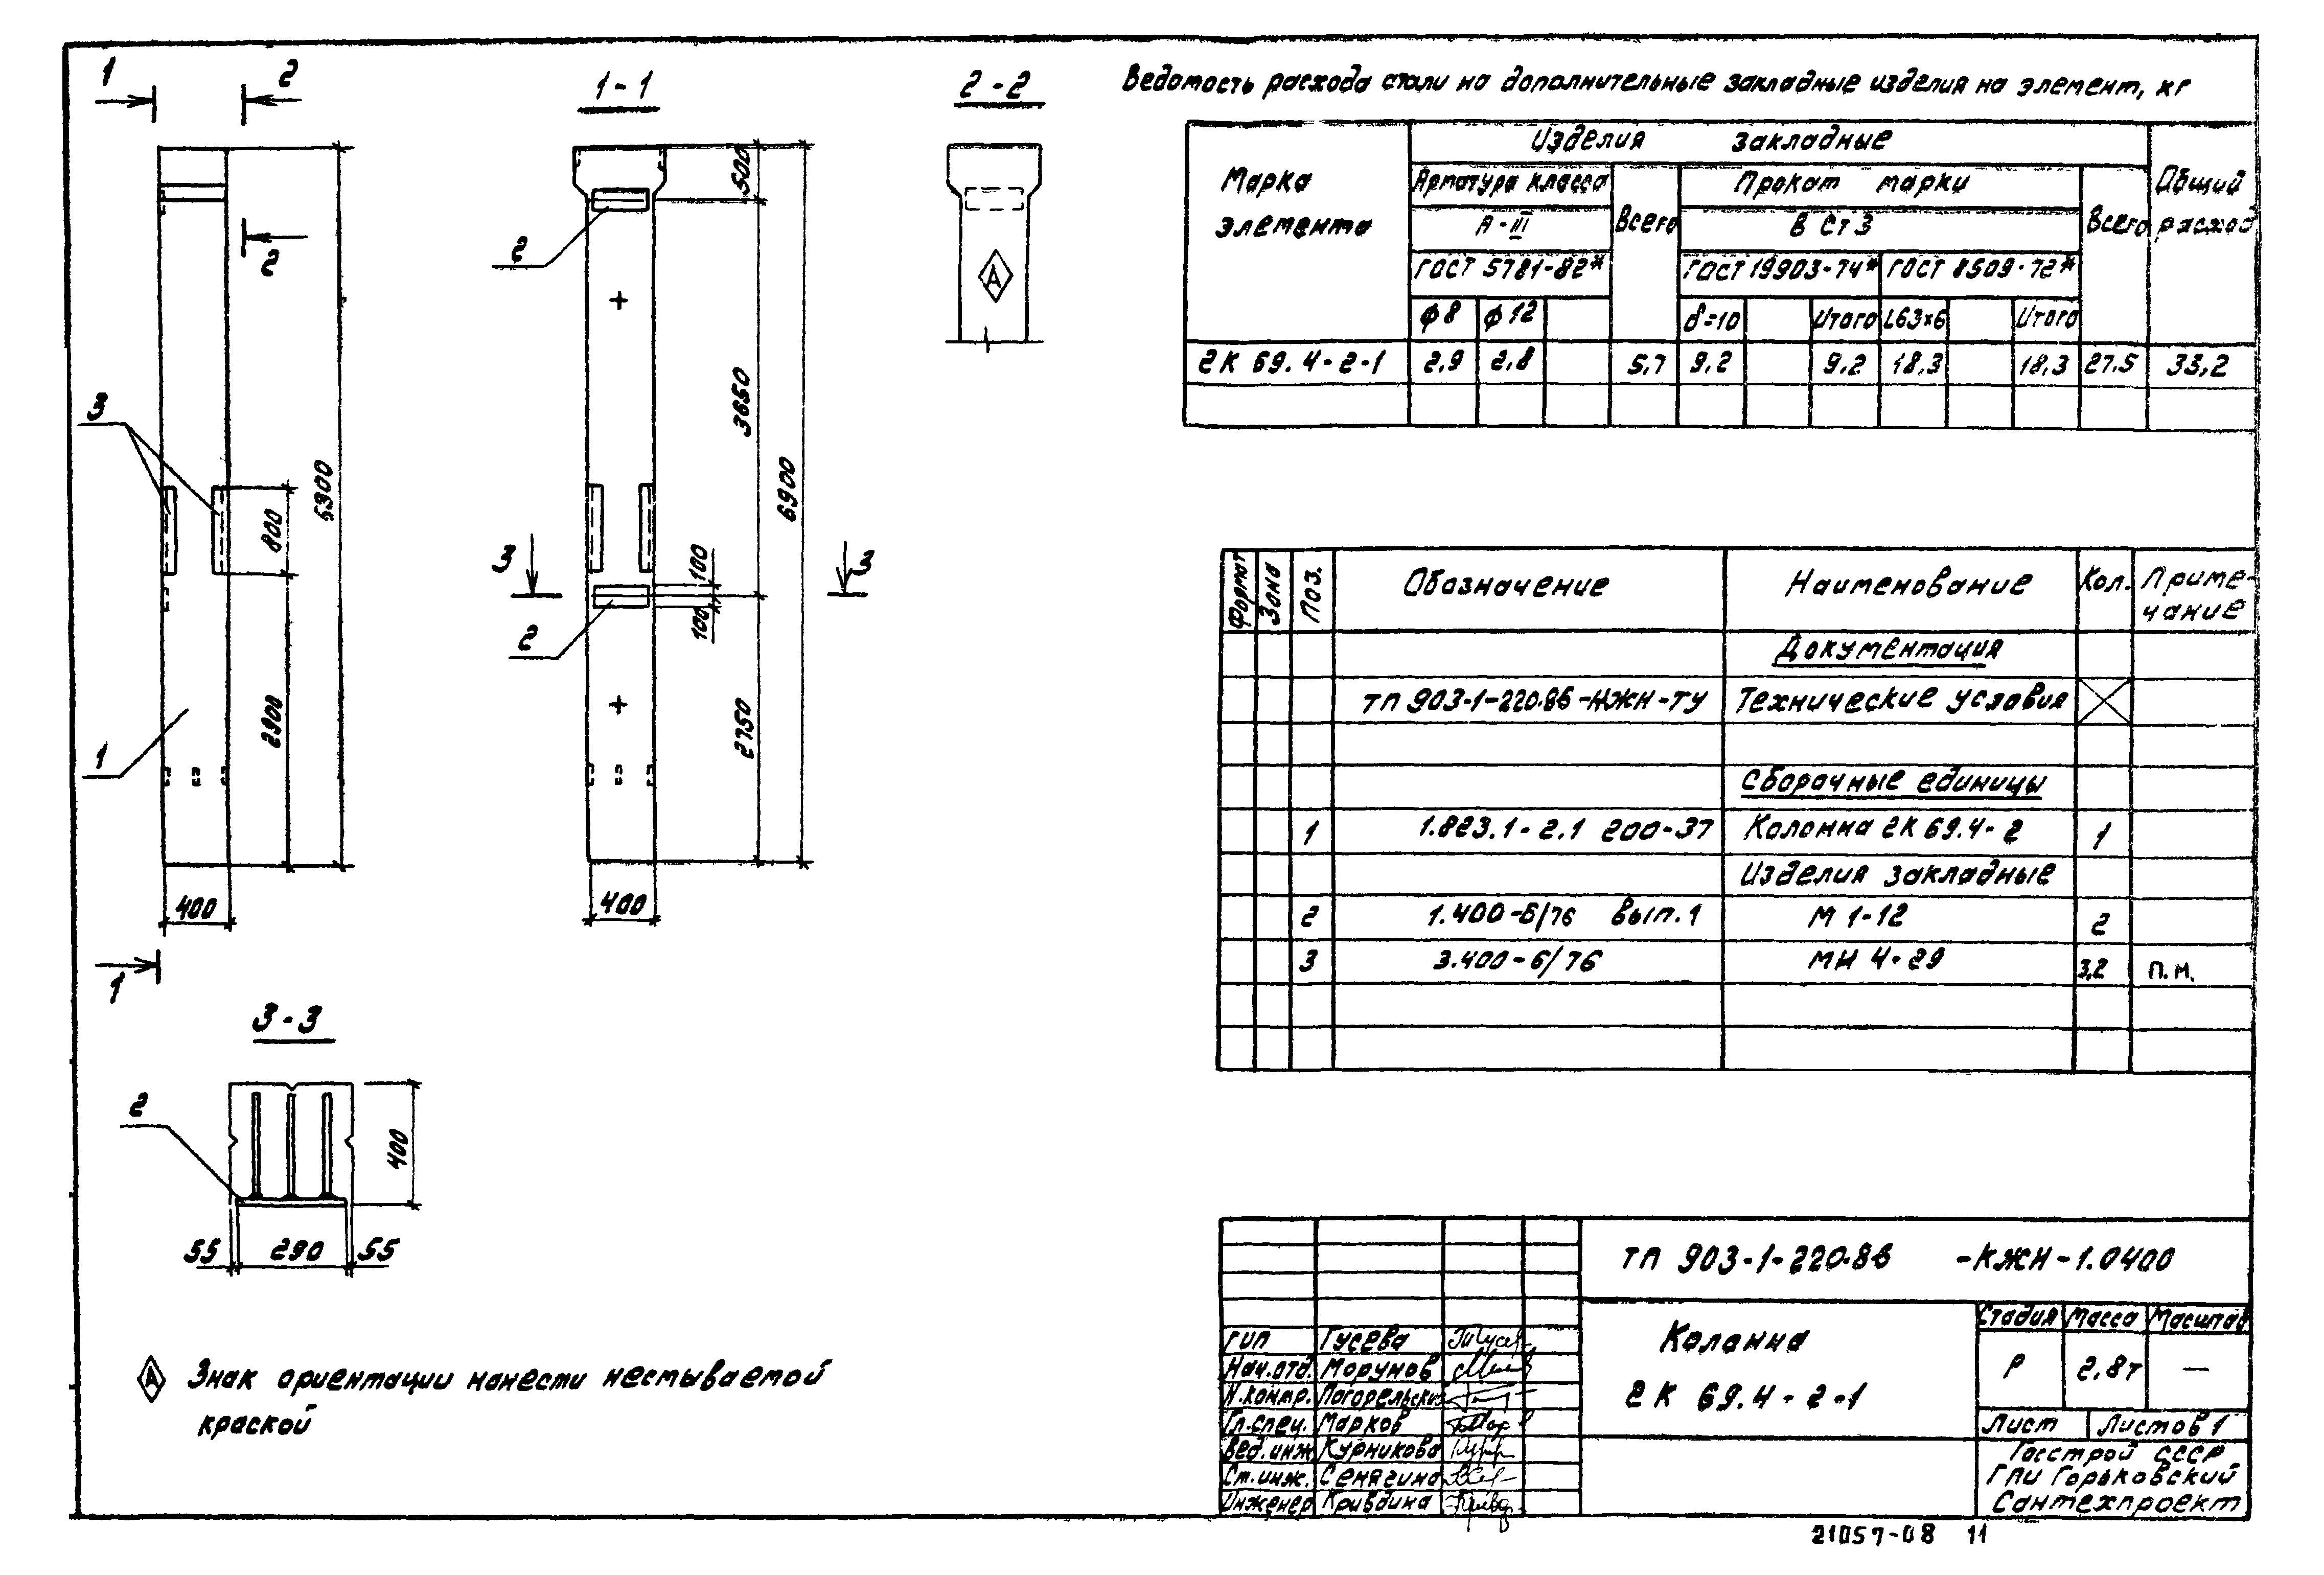 1
2
2
3
800
2900
6900
1
400
1
1-1
2
500
3650
6900
3
3
100
100
2
2750
400
2-2
А
3-3
2
400
55
290
55
А Знак ориентации нанести несмываемой
краской
Ведомость расхода стали на дополнительные закладные изделия на элемент, кг
Марка элемента
Изделия закладные
Общий расход
Арматура класса
Всего
Прокат марки
Всего
А-III
В Ст 3
ГОСТ 5781-82*
ГОСТ 19903-74*
ГОСТ 8509-72*
ϕ8
ϕ12
δ=10
Итого
L63×6
Итого
2К 69.4-2-1
2,9
2,8
5,7
9,2
9,2
18,3
18,3
27,5
33,2
Формат
Зона
Поз.
Обозначение
Наименование
Кол.
Приме-
чание
Документация
ТП 903-1-220.86-КЖН-ТУ
Технические условия
Сборочные единицы
1
1.823.1-2.1 200-37
Колонна 2К 69.4-2
1
Изделия закладные
2
1.400-6/76 вып.1
М 1-12
2
3
3.400-6/76
МН 4-29
3,2
п.м.
ТП 903-1-220.86 -КЖН-1.0400
Колонна
2К 69.4-2-1
Стадия
Масса
Масштаб
Р
2,8т
—
Лист
Листов 1
Госстрой СССР
ГПИ Горьковский
Сантехпроект
ГИП Гусева
Нач.отд. Морунов
Н.контр. Погорельский
Гл.спец. Марков
Вед.инж. Курникова
Ст.инж. Сенягина
Инженер Кривдина
21057-08 11